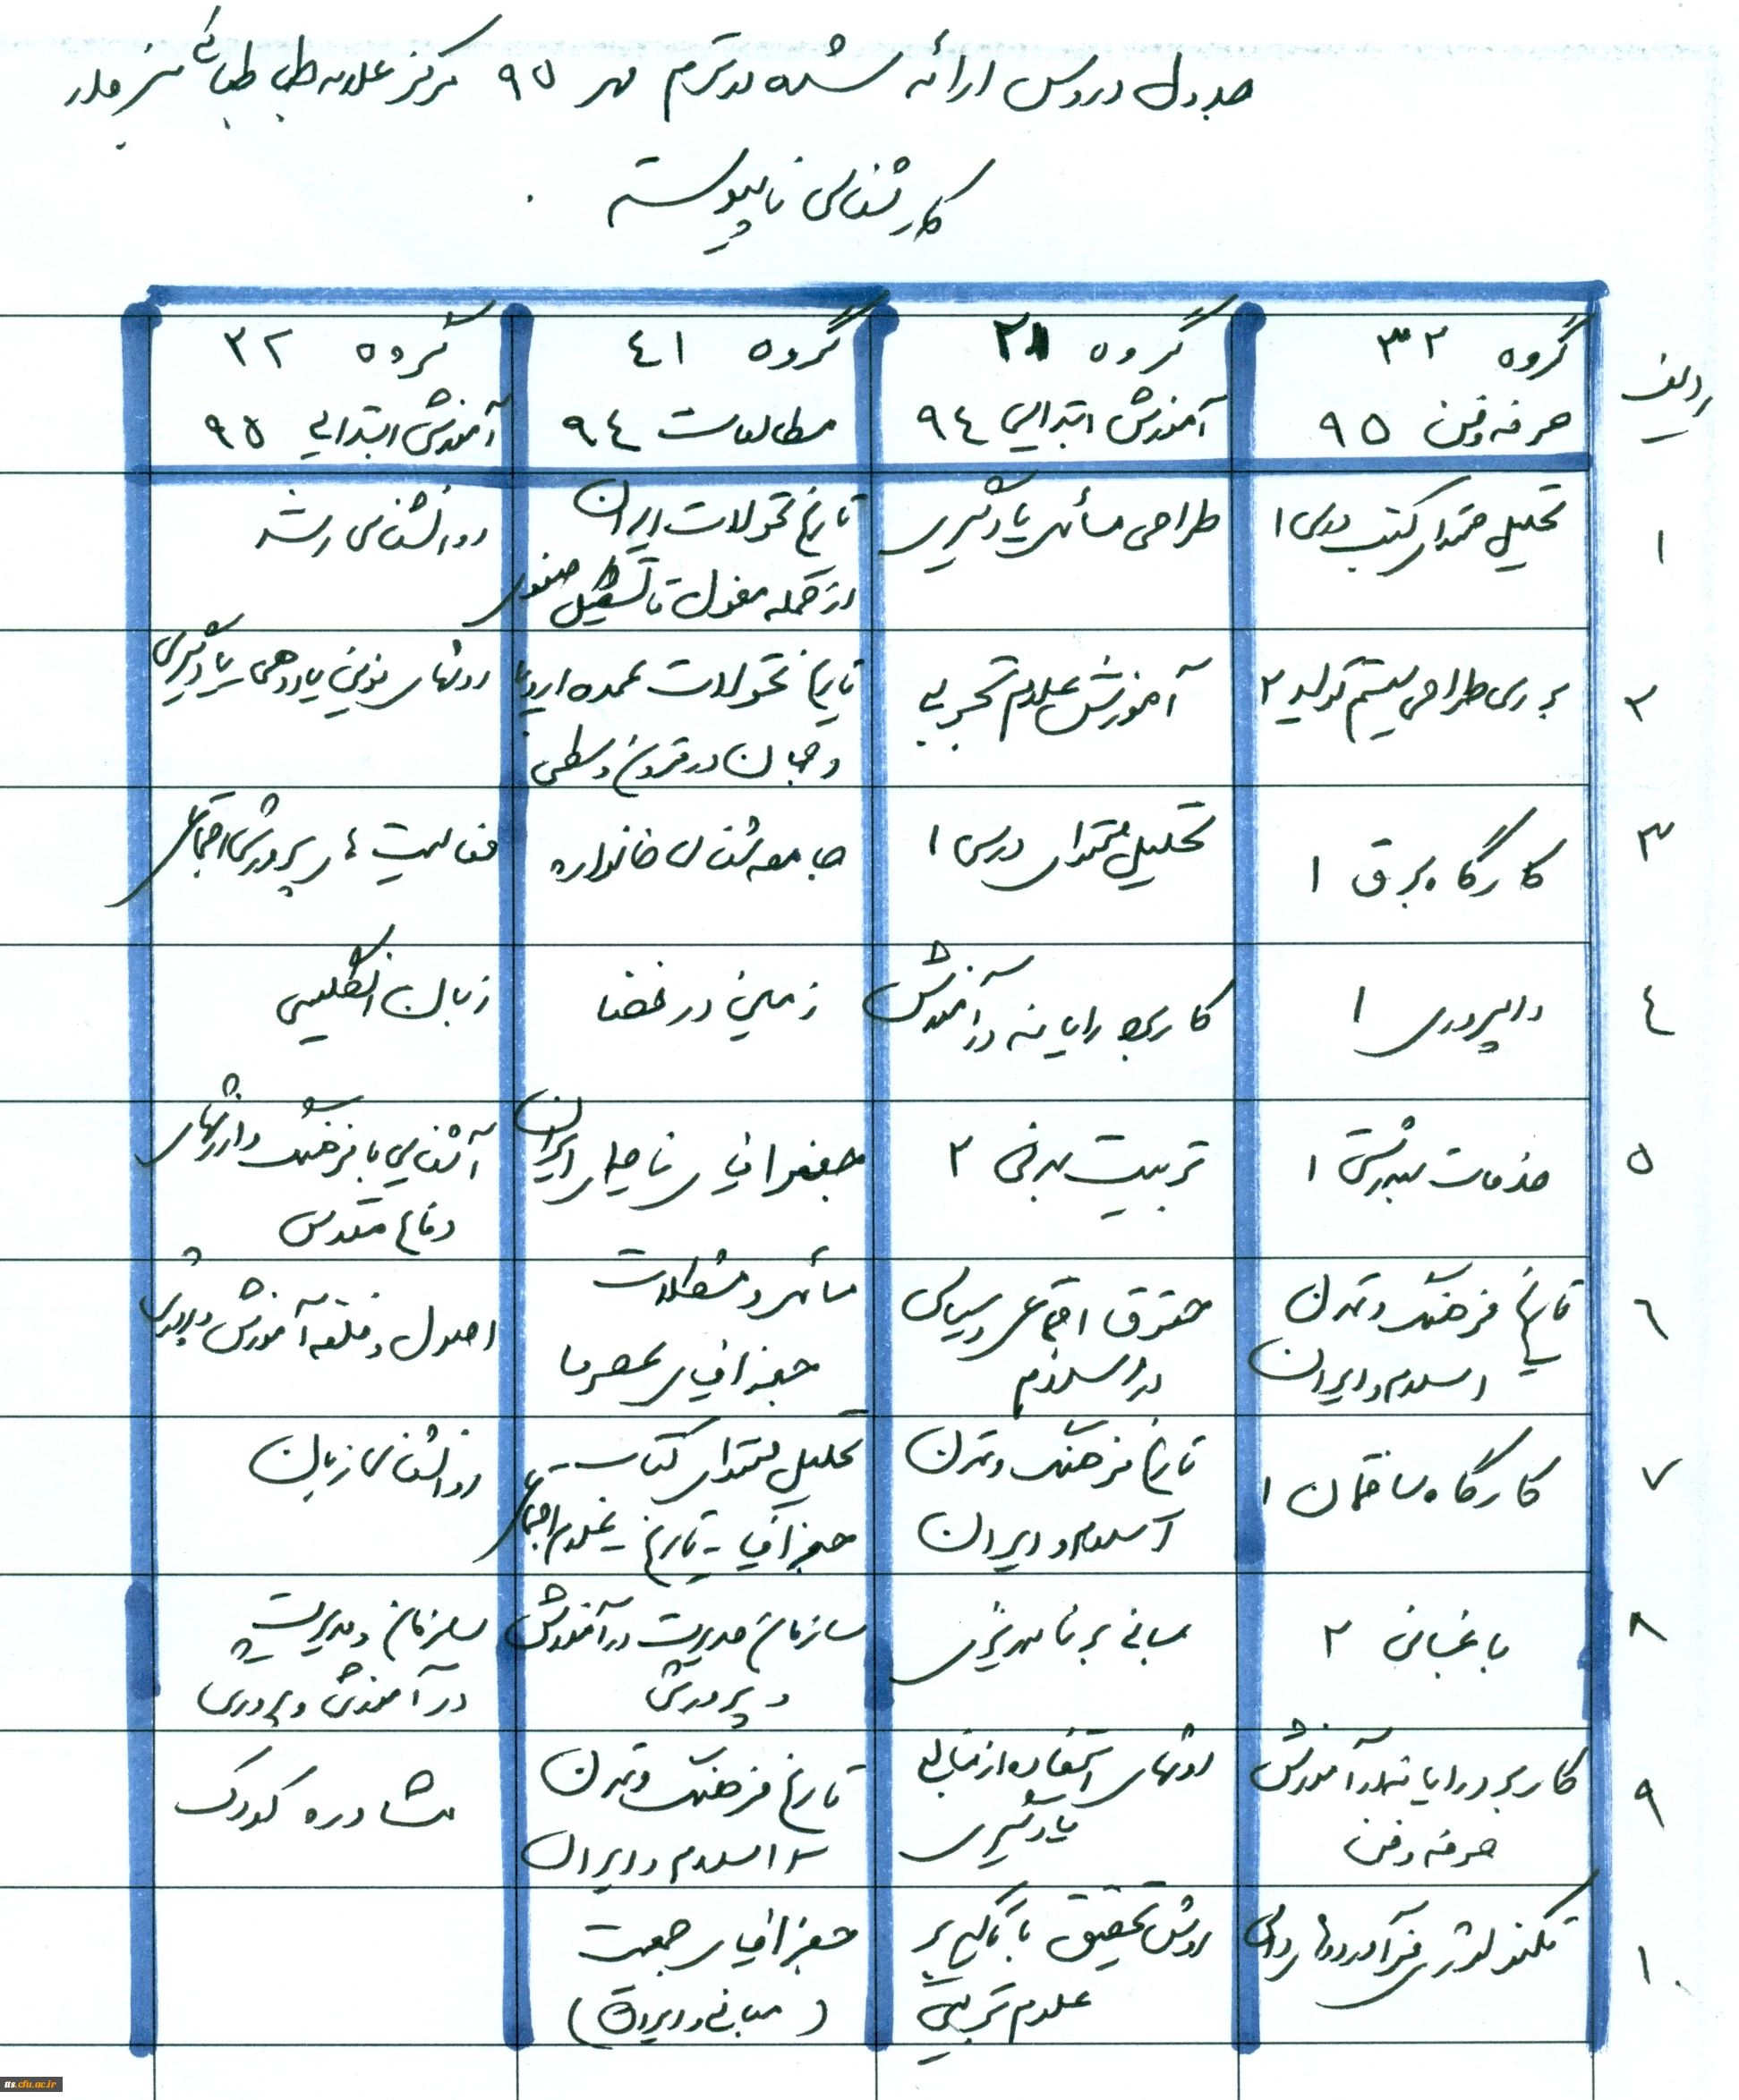 جدول دروس ارائه شده در ترم مهر ۹۵ مرکز علامه طباطبائی
کارشناسی ناپیوسته
ردیف
گروه ۳۲
حرفه و فن ۹۵
گروه ۲۱
آموزش ابتدایی ۹٤
گروه ٤۱
مطالعات ۹٤
گروه ۲۲
آموزش ابتدایی ۹۵
۱
تحلیل محتوای کتب درسی ۱
طراحی مسائل یادگیری
تاریخ تحولات ایران
از حمله مغول تا تشکیل صفوی
روانشناسی رشد
۲
بررسی طراحی سیستم تولید ۲
آموزش علوم تجربی
تاریخ تحولات عمده اروپا
و جهان در قرون وسطی
روشهای نوین یاددهی یادگیری
۳
کارگاه برق ۱
تحلیل محتوای درسی ۱
جامعه شناسی خانواده
فعالیت های پرورشی اجتماعی
٤
دامپروری ۱
کاربرد رایانه در آموزش
زمین در فضا
زبان انگلیسی
۵
خدمات بهداشتی ۱
تربیت بدنی ۲
جغرافیای ناحیه ای ایران
آشنایی با فرهنگ و ارزشهای
دفاع مقدس
٦
تاریخ فرهنگ و تمدن
اسلام و ایران
حقوق اجتماعی و سیاسی
در اسلام
مسائل و مشکلات
جغرافیای عصر ما
اصول و فلسفه آموزش و پرورش
۷
کارگاه ساختمان ۱
تاریخ فرهنگ و تمدن
اسلام و ایران
تحلیل محتوای کتاب
جغرافیا - تاریخ - علوم اجتماعی
روانشناسی زبان
۸
باغبانی ۲
مبانی برنامه ریزی
سازمان مدیریت در آموزش
و پرورش
سازمان و مدیریت
در آموزش و پرورش
۹
کاربرد رایانه در آموزش
حرفه و فن
روشهای استفاده از منابع
یادگیری
تاریخ فرهنگ و تمدن
اسلام و ایران
مشاوره کودک
۱۰
تکنولوژی فرآورده های دامی
روش تحقیق با تاکید بر
علوم تربیتی
جغرافیای جمعیت
(مبانی و ایران)
tts.cfu.ac.ir